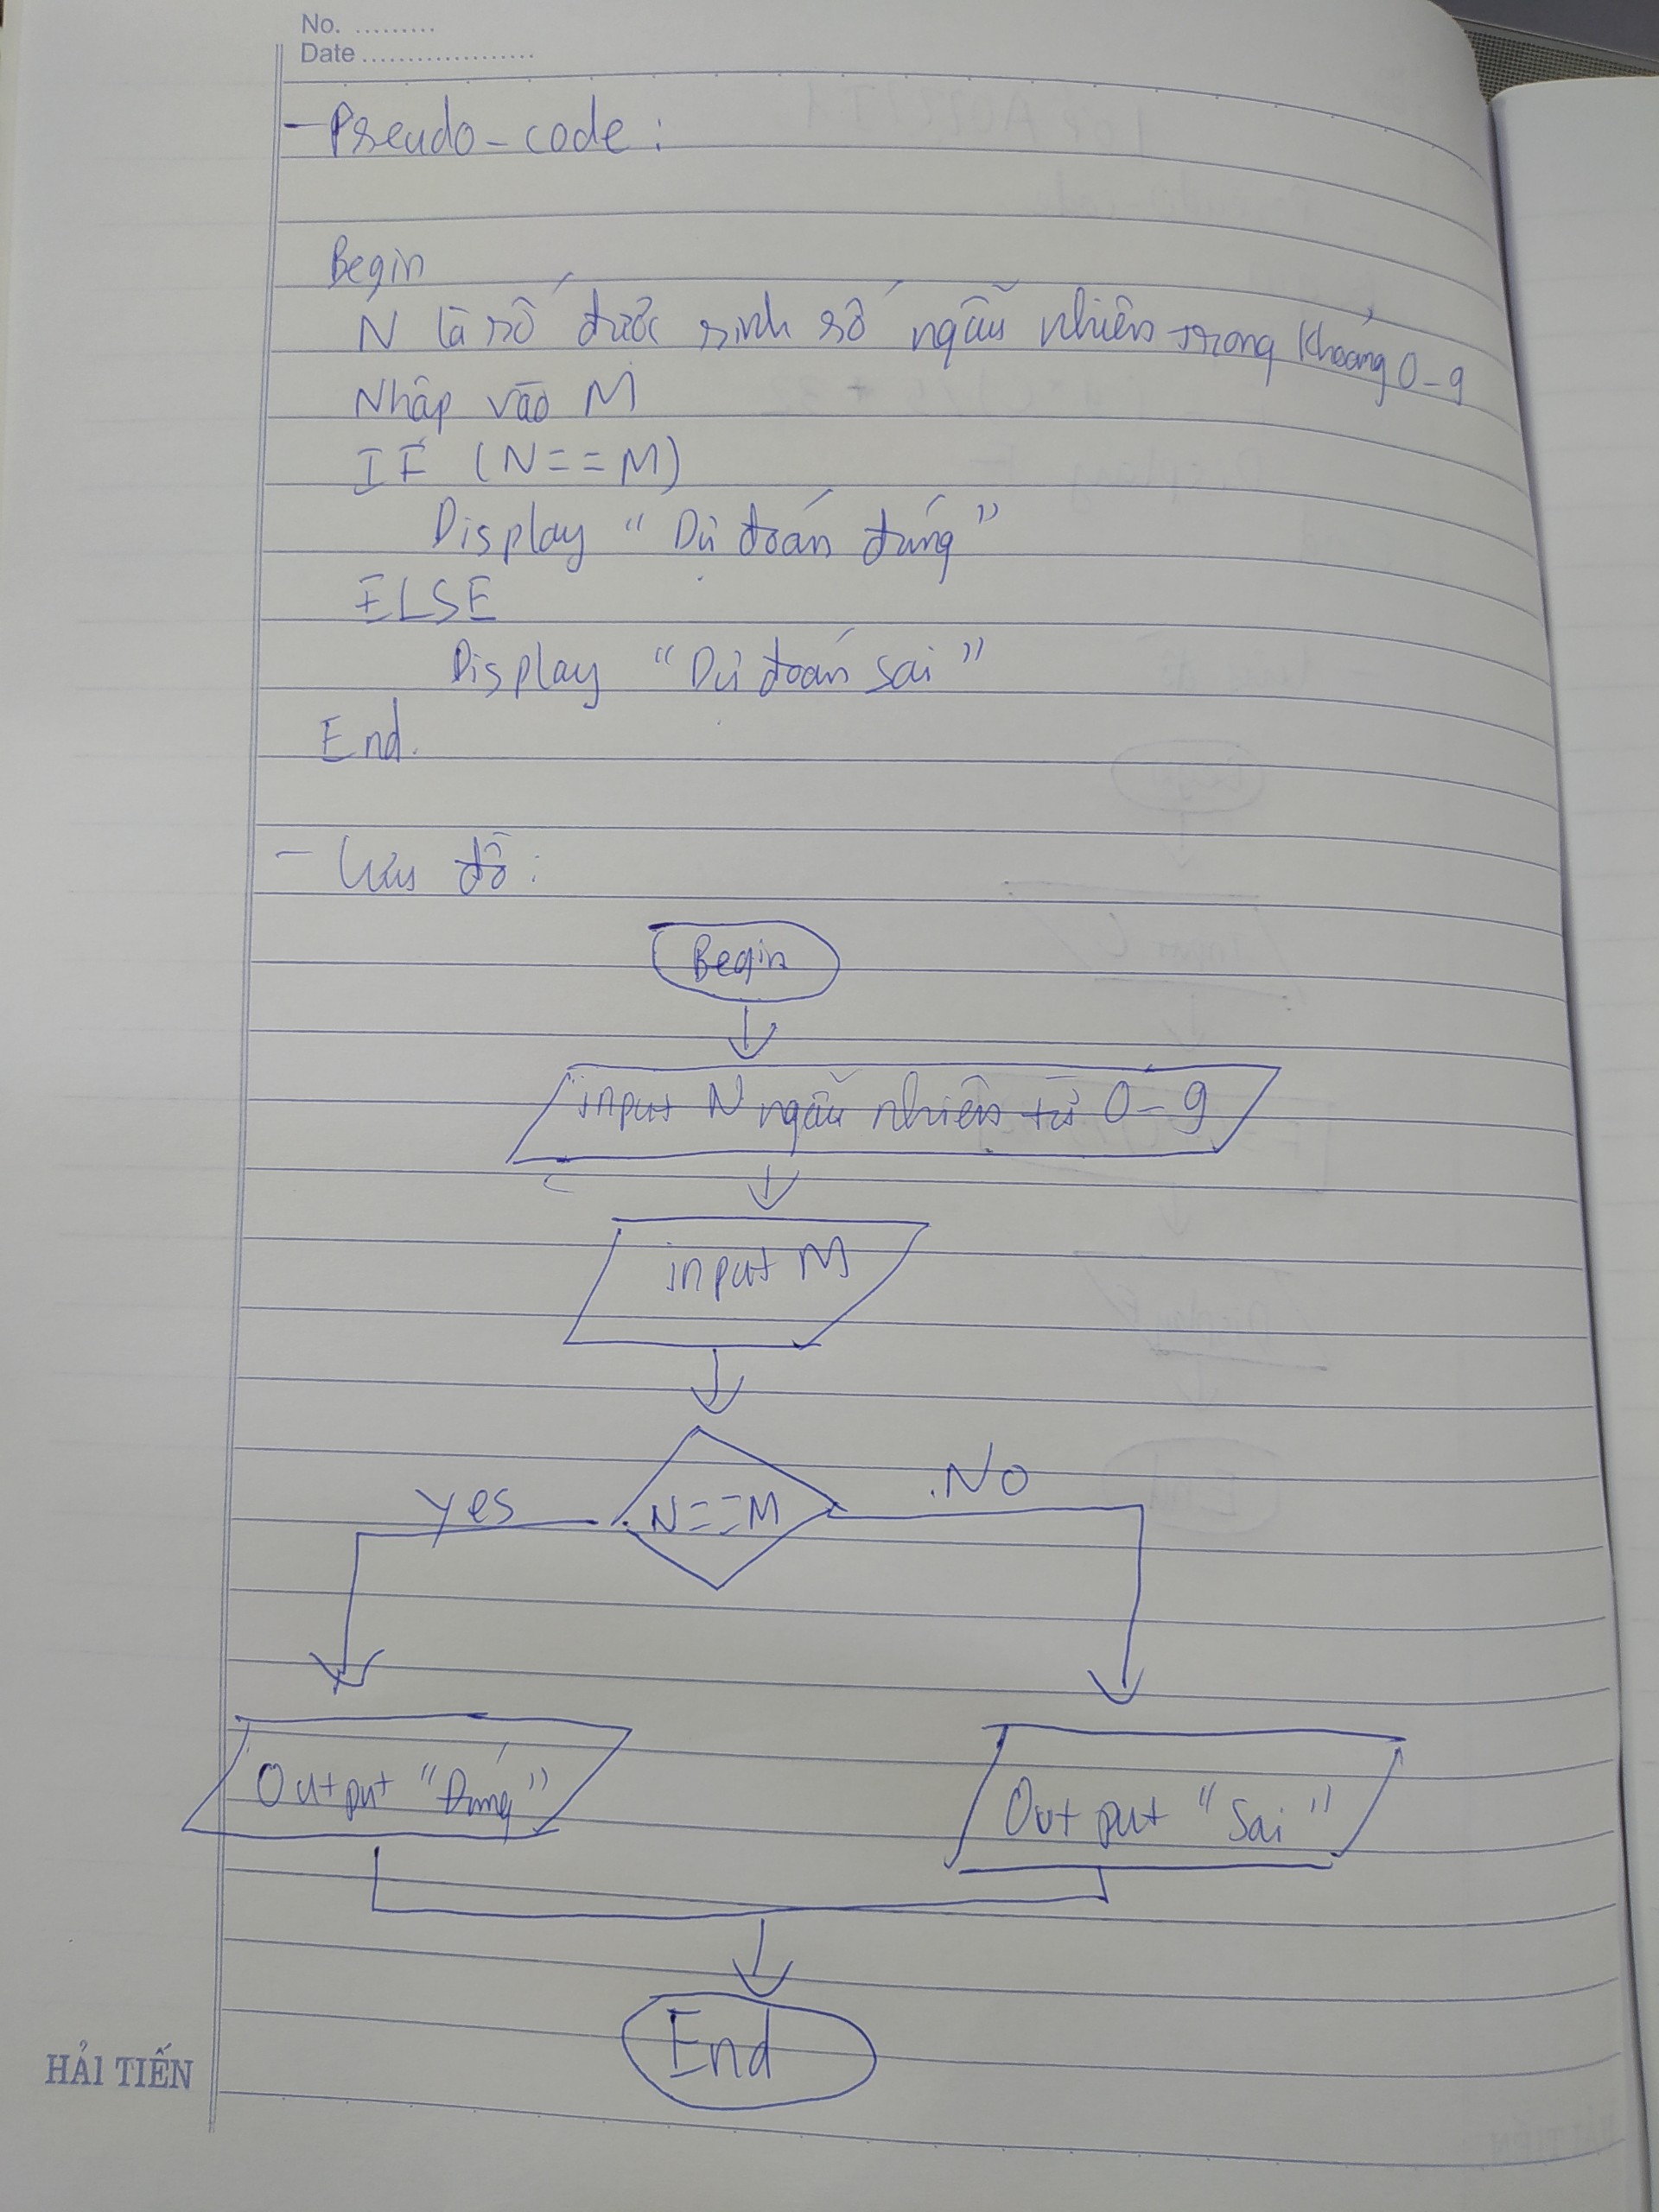 No. .........
Date ...................
- Pseudo-code:
Begin
N là số được sinh số ngẫu nhiên trong khoảng 0-9
Nhập vào M
IF (N==M)
Display "Dự đoán đúng"
ELSE
Display "Dự đoán sai"
End.
- Lưu đồ:
Begin
input N ngẫu nhiên từ 0-9
input M
yes
N==M
No
Output "Đúng"
Output "Sai"
End
HẢI TIẾN